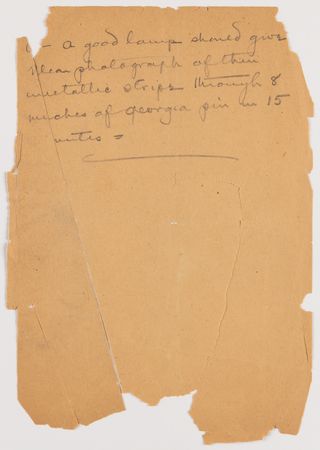 — a good lamp should give
clean photograph of thin
metallic strips through 8
inches of Georgia pin in 15
utes =